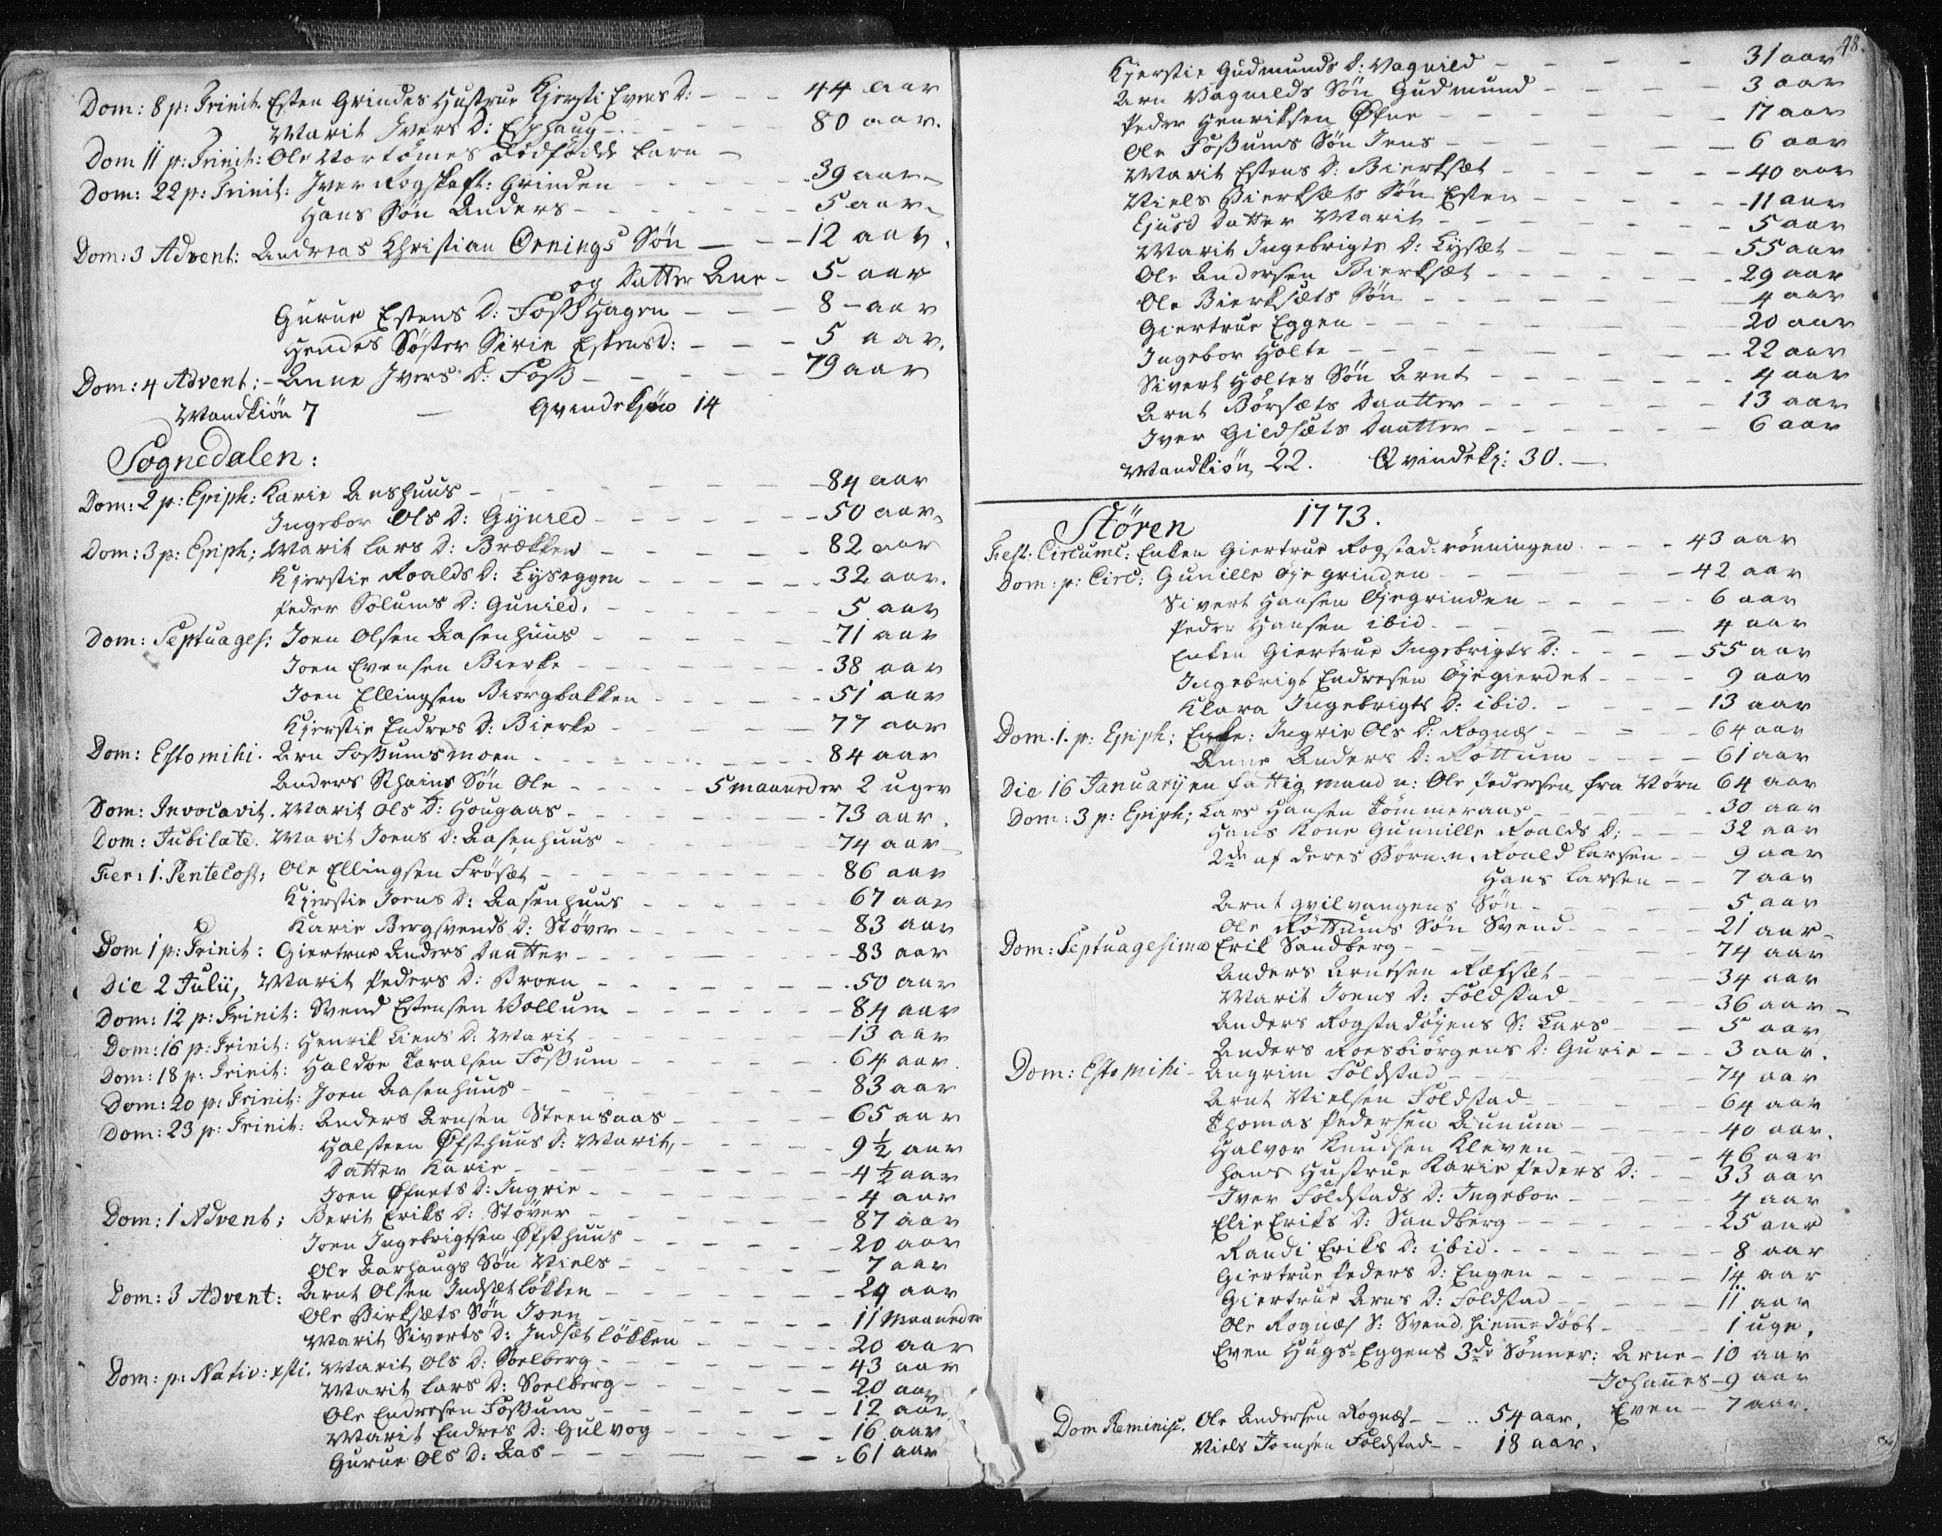 Dom: 8 p: Trinit. Esten Grindes Hustrue Kjersti Evens D: - - - 44 aar
Marit Ivers D: Esphaug - - - - - - 80 aar.
Dom 11 p: Trinit: Ole Vortømes dødfødde barn -
Dom: 22 p: Trinit: Iver Rogskaft: Grinden - - - - - 39 aar
Hans Søn Anders - - - - - - 5 aar
Dom: 3 Advent: Andreas Christian Ørnings Søn - - - 12 aar
og Datter Ane - 5 - aar
Gurue Estens D: Foss Hagen - - - 8 - aar
Hendes Søster Sirie Estens D: - - - 5 aar.
Dom: 4 Advent: - Anne Ivers D: Foss - - - - - 79 aar
Mandkiøn 7 - Qvindekjøn 14
Sognedalen:
Dom: 2 p: Epiph: Karie Anshuus - - - - - - 84 aar
Ingebor Ols D: Gynild - - - - - - 50 aar
Dom: 3 p: Epiph: Marit Lars D: Brækken - - - - - - 82 aar
Kjerstie Roalds D: Lyseggen - - - - - 32 aar.
Peder Solums D: Gunild. - - - - - - 5 aar
Dom: Septuages: Joen Olsen Aasenhuus - - - - - - 71 aar
Joen Evensen Bierke - - - - - - 38 aar
Joen Ellingsen Biørgbakken - - - - - 51 aar
Kjerstie Endres D: Bierke - - - - - - 77 aar
Dom: Estomihi. Arn Fossumsmoen - - - - - - 84 aar
Anders Schains Søn Ole - - - - 5 maaneder 2 uger
Dom: Invocavit. Marit Ols D: Hougaas - - - - - - 73 aar.
Dom: Jubilate. Marit Joens D: Aasenhuus - - - - - 74 aar
Fer: 1. Pentecost: Ole Ellingsen Frøsæt - - - - - - 86 aar
Kjerstie Joens D: Aasenhuus - - - - - 67 aar
Karie Bergsvends D: Støver - - - - - 83 aar
Dom 1 p: Trinit: Giertrue Anders Daatter - - - - - - 83 aar
Die 2 Julii, Marit Peders D: Broen - - - - - - 50 aar
Dom: 12 p: Trinit: Svend Estensen Vollum - - - - - 84 aar
Dom: 16 p: Trinit: Henrik Liens D: Marit - - - - - - 13 aar
Dom: 18 p: Trinit: Haldoe Taralsen Fossum - - - - - 64 aar.
Dom: 20 p: Trinit: Joen Aasenhuus - - - - - - 83 aar
Dom: 23 p: Trinit: Anders Arnsen Steensaas - - - - - 65 aar
Halsteen Øfsthuus D: Marit, - - - - 9 ½ aar
Datter Karie - - - - - - 4 ½ aar
Joen Øfnets D: Ingrie - - - - - - 4 aar
Dom: 1 Advent; Berit Eriks D: Støver - - - - - - 87 aar
Joen Ingebrigtsen Øfsthuus - - - - - 20 aar
Ole Aarhaugs Søn Niels - - - - - 7 aar
Dom: 3 Advent: Arnt Olsen Indsætløkken - - - - - 24 aar
Ole Birksæts Søn Joen - - - - - 11 Maaneder
Marit Siverts D: Indsætløkken - - - - 20 aar
Dom: p: Nativ: xsti. Marit Ols D: Soelberg - - - - - 43 aar
Marit Lars D: Soelberg - - - - - 20 aar
Ole Endresen Fossum - - - - - 12 aar
Marit Endres D: Gulvog - - - - - 16 aar
Gurue Ols D: Aas - - - - - - 61 aar
48.
Kjerstie Gudmunds D: Vagnild - - - - 31 aar
Arn Vagnilds Søn Gudmund - - - - 3 aar
Peder Henriksen Øfne - - - - - - 17 aar
Ole Fossums Søn Jens - - - - - - 6 aar
Marit Estens D: Bierksæt - - - - - 40 aar
Niels Bierksæts Søn Esten - - - - - 11 aar
Ejusd Datter Marit - - - - - - 5 aar
Marit Ingebrigts D: Lysæt - - - - - 55 aar
Ole Andersen Bierksæt - - - - - - 29 aar
Ole Bierksæts Søn - - - - - - 4 aar
Giertrue Eggen - - - - - - 20 aar
Ingebor Holte - - - - - - - 22 aar
Sivert Holtes Søn Arnt - - - - - - 4 aar
Arnt Børsæts Daatter - - - - - - 13 aar
Iver Gildsæts Daatter - - - - - - 6 aar
Mandkiøn 22. Qvindekj: 30. -
Støren 1773.
Fest. Circumc: Enken Giertrue Rogstad: rønningen - - - 43 aar
Dom: p: Circ: Gunille Øje grinden - - - - - - 42 aar
Sivert Hansen Øjegrinden - - - - - 6 aar
Peder Hansen ibid - - - - - - 4 aar
Enken Giertrue Ingebrigts D: - - - - 55 aar
Ingebrigt Endresen Øjegierdet - - - - 9 aar
Klara Ingebrigts D: ibid. - - - - - 13 aar
Dom. 1. p: Epiph; Enke: Ingrie Ols D: Rognæs - - - - 64 aar
Anne Anders D: Røttum - - - - 61 aar
Die 16 Januarij en fattig mand n: Ole Pedersen fra Børn 64 aar
Dom: 3 p: Epiph; Lars Hansen Tømmeraas - - - - - 30 aar
Hans Kone Gunnille Roalds D: - - - 32 aar
2de af deres Børn: n. Roald Larsen - - 9 aar
Hans Larsen - - 7 aar
Arnt qvilvangens Søn - - - - - 5 aar
Ole Røttums Søn Svend - - - - 21 aar
Dom: Septuagesimæ Erik Sandberg - - - - - - 74 aar
Anders Arntsen Ræfsæt - - - - 34 aar
Marit Joens D: Foldstad - - - - - 36 aar
Anders Rogstadøjens S: Lars - - - 5 aar
Anders Roesbiørgens D: Gurie - - - 3 aar.
Dom: Estomihi - Angrim Foldstad - - - - - - 74 aar
Arnt Nielsen Foldstad - - - - - 64 aar
Thomas Pedersen Aunum - - - - - 40 aar.
Halvor Knudsen Kleven - - - - - 46 aar
Hans Hustrue Karie Peders D: - - 33 aar
Iver Foldstads D: Ingebor - - - - 4 aar
Elie Eriks D: Sandberg - - - - - 25 aar
Randi Eriks D: ibid. - - - - - - 8 aar
Giertrue Peders D: Engen - - - - - 14 aar
Giertrue Arns D: Foldstad - - - - - 11 aar
Ole Rognæs S: Svend, hiemmedøbt - - - - 1 uge.
Even Hugs-Eggens 3de Sønner: Arne - 10 aar
Johannes - 9 aar
Even - 7 aar.
Dom Reminisc. Ole Andersen Rognæs - - - 54 aar,
Niels Joensen Foldstad - - 18 aar.